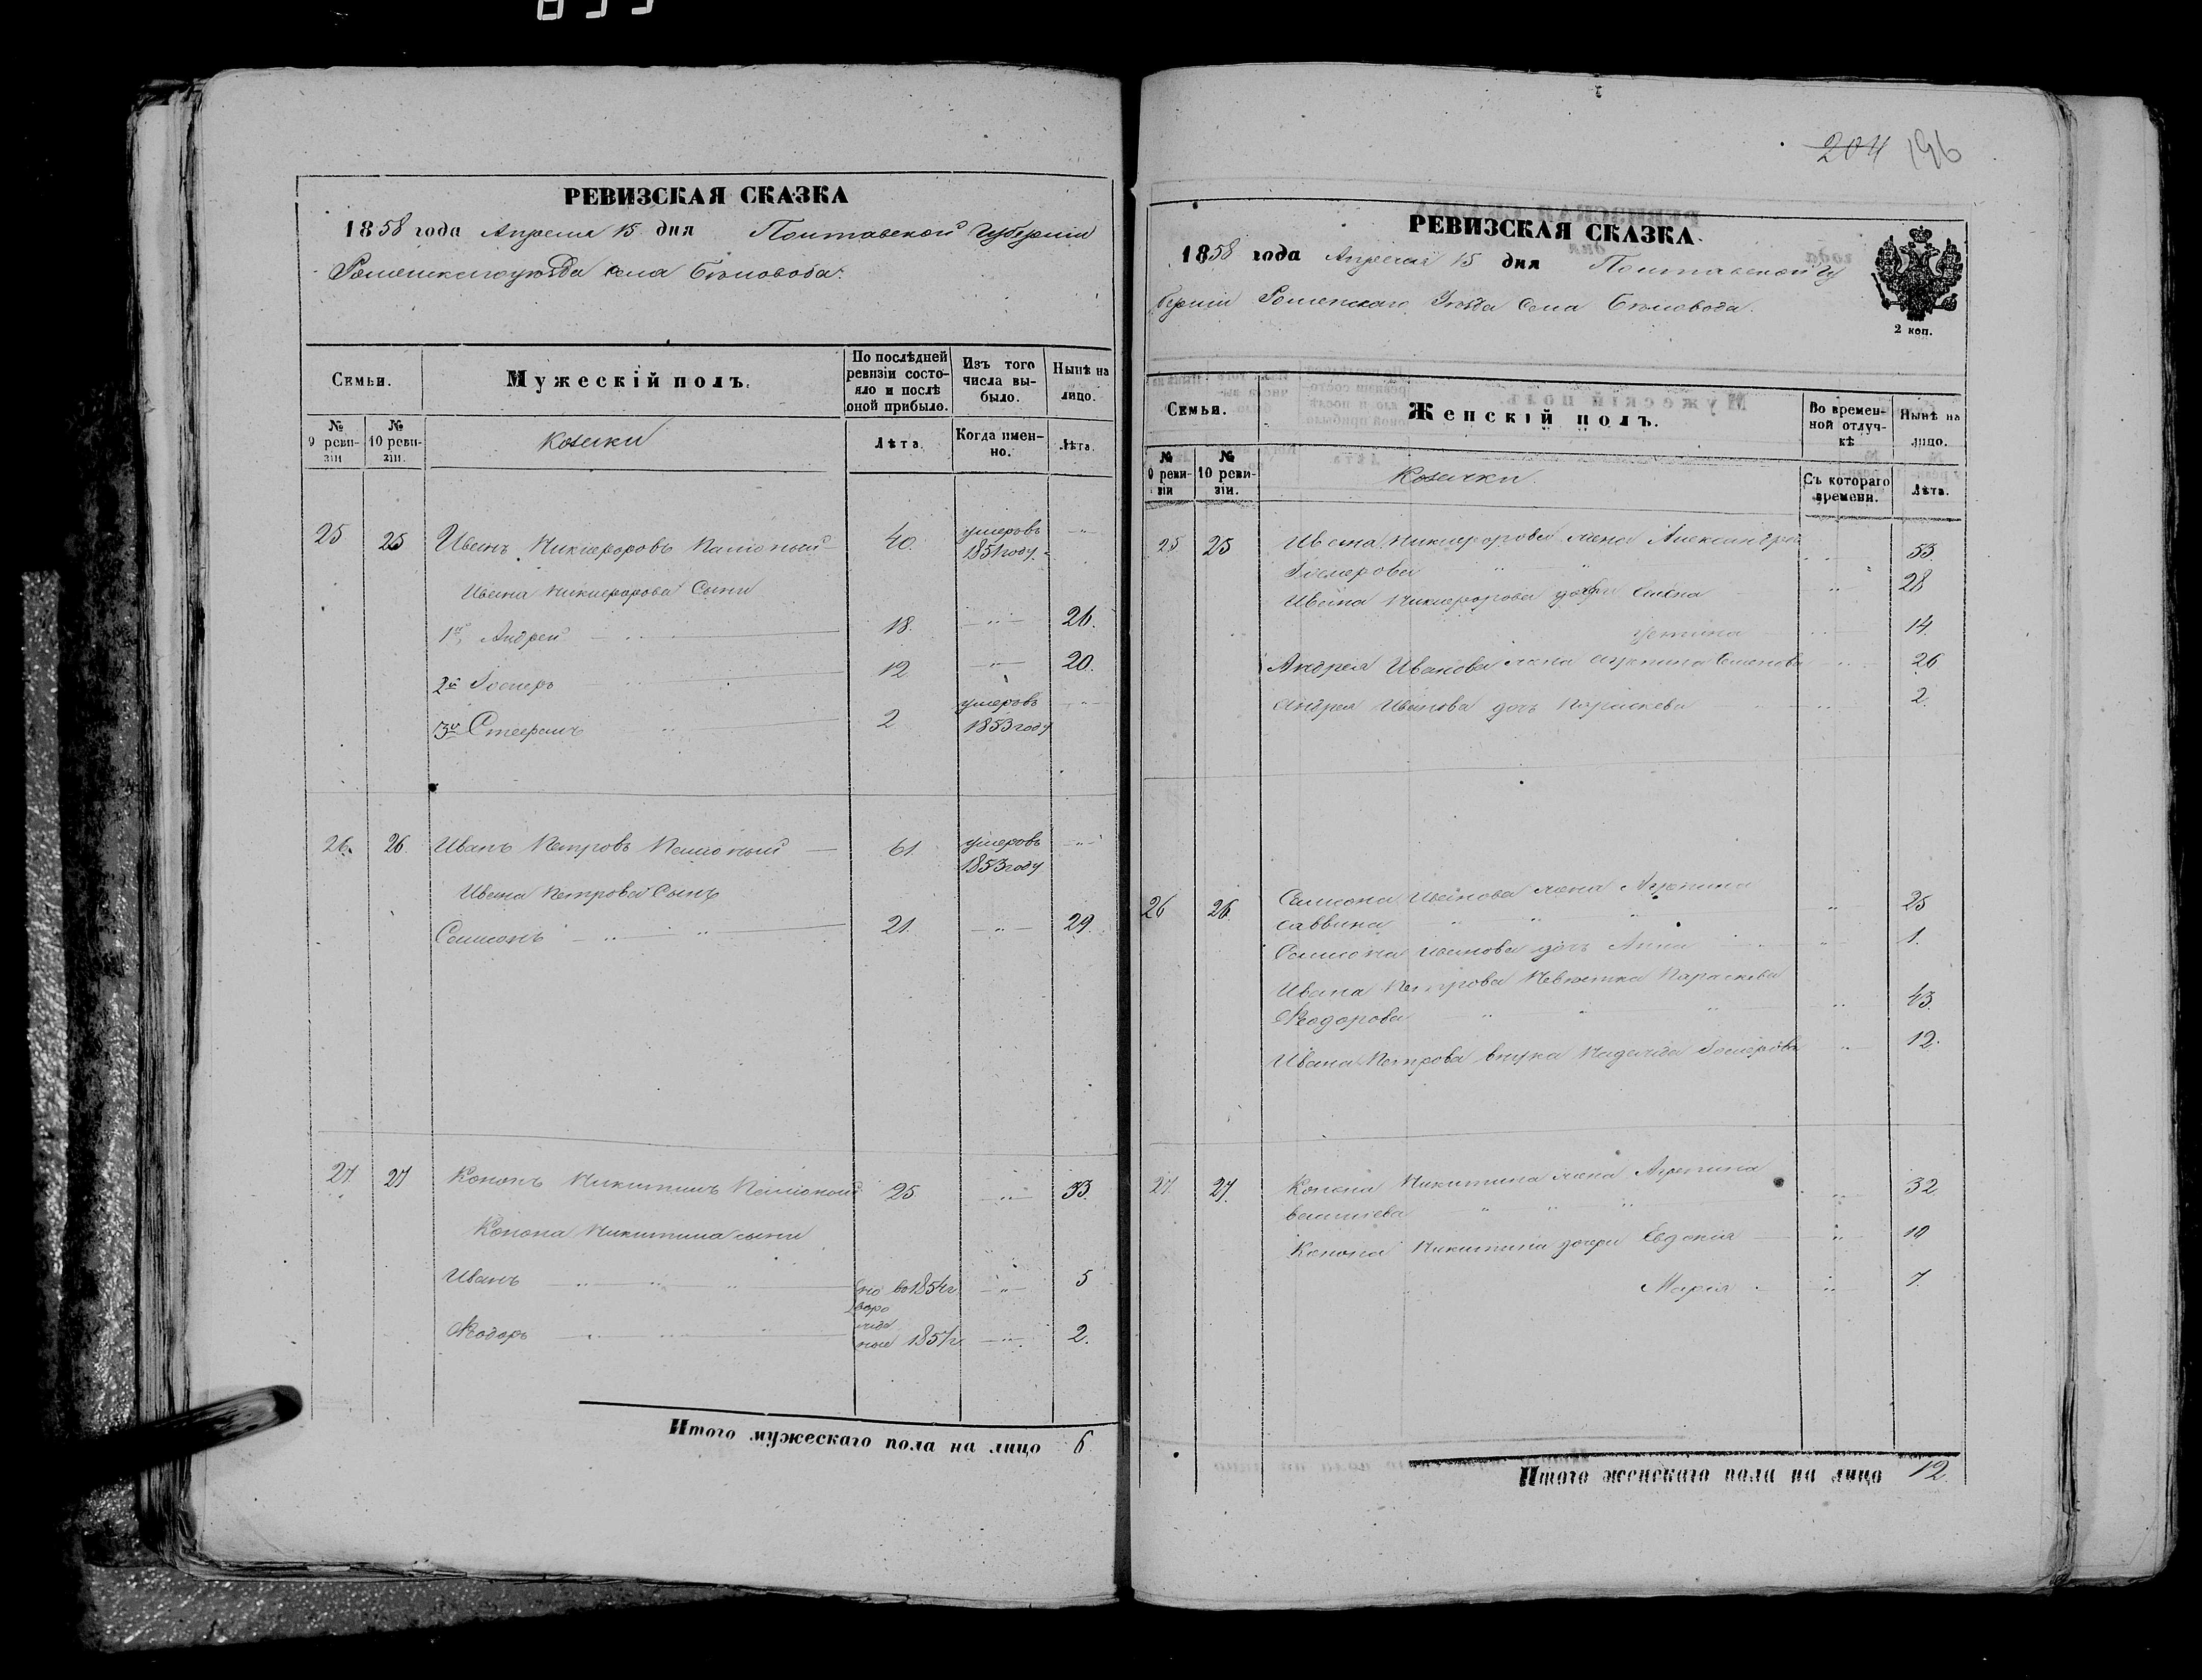 204 196
РЕВИЗСКАЯ СКАЗКА
1858 года Апреля 15 дня Полтавской Губерніи
Роменскаго уезда села Беловода.
Семьи.
Мужескій полъ.
По послѣдней ревизіи состояло и послѣ оной прибыло.
Изъ того числа выбыло.
Нынѣ на лицо.
№ 9 ревизіи
№ 10 ревизіи.
Козаки
Лѣта.
Когда именно.
Лѣта.
25 25 Иванъ Никифоровъ 40. умеръ въ
1851 году.
Ивана Никифорова Сыни
1й Андрей 18. 26.
2й 12 20.
умеръ въ
3й Стефанъ 2 1853 году
26. 26. Иванъ Петровъ 61. умеръ въ
1853 году
Ивана Петрова Сынъ
Самсонъ 21. 29.
27. 27 Кононъ Никитинъ 25. 33.
Конона Никитина сыни
Иванъ 5
Ѳеодоръ 2.
Итого мужескаго пола на лицо 6
РЕВИЗСКАЯ СКАЗКА
1858 года Апреля 15 дня Полтавской Гу
берніи Роменскаго Уезда Села Беловода.
2 коп.
Семьи.
Женскій полъ.
Во временной отлучкѣ
Нынѣ на лицо.
№ 9 ревизіи
№ 10 ревизіи.
Козачки
Съ котораго времени.
Лѣта.
25 25 Ивана Никифорова жена Александра
53.
Ивана Никифорова дочери 28
14.
Андрея Иванова жена Семенова 26
Андрея Иванова дочь Параскева 2.
26 26 Самсона Иванова жена Агрепина
Саввина 25
Самсона Иванова дочь Анна 1.
Ивана Петрова Невестка Параскева
Ѳеодорова 43.
Ивана Петрова внука Надежда 12.
27. 27. Конона Никитина жена Агрепина
32
Конона Никитина дочери Евдокия 10
Мария 7.
Итого женскаго пола на лицо 12.